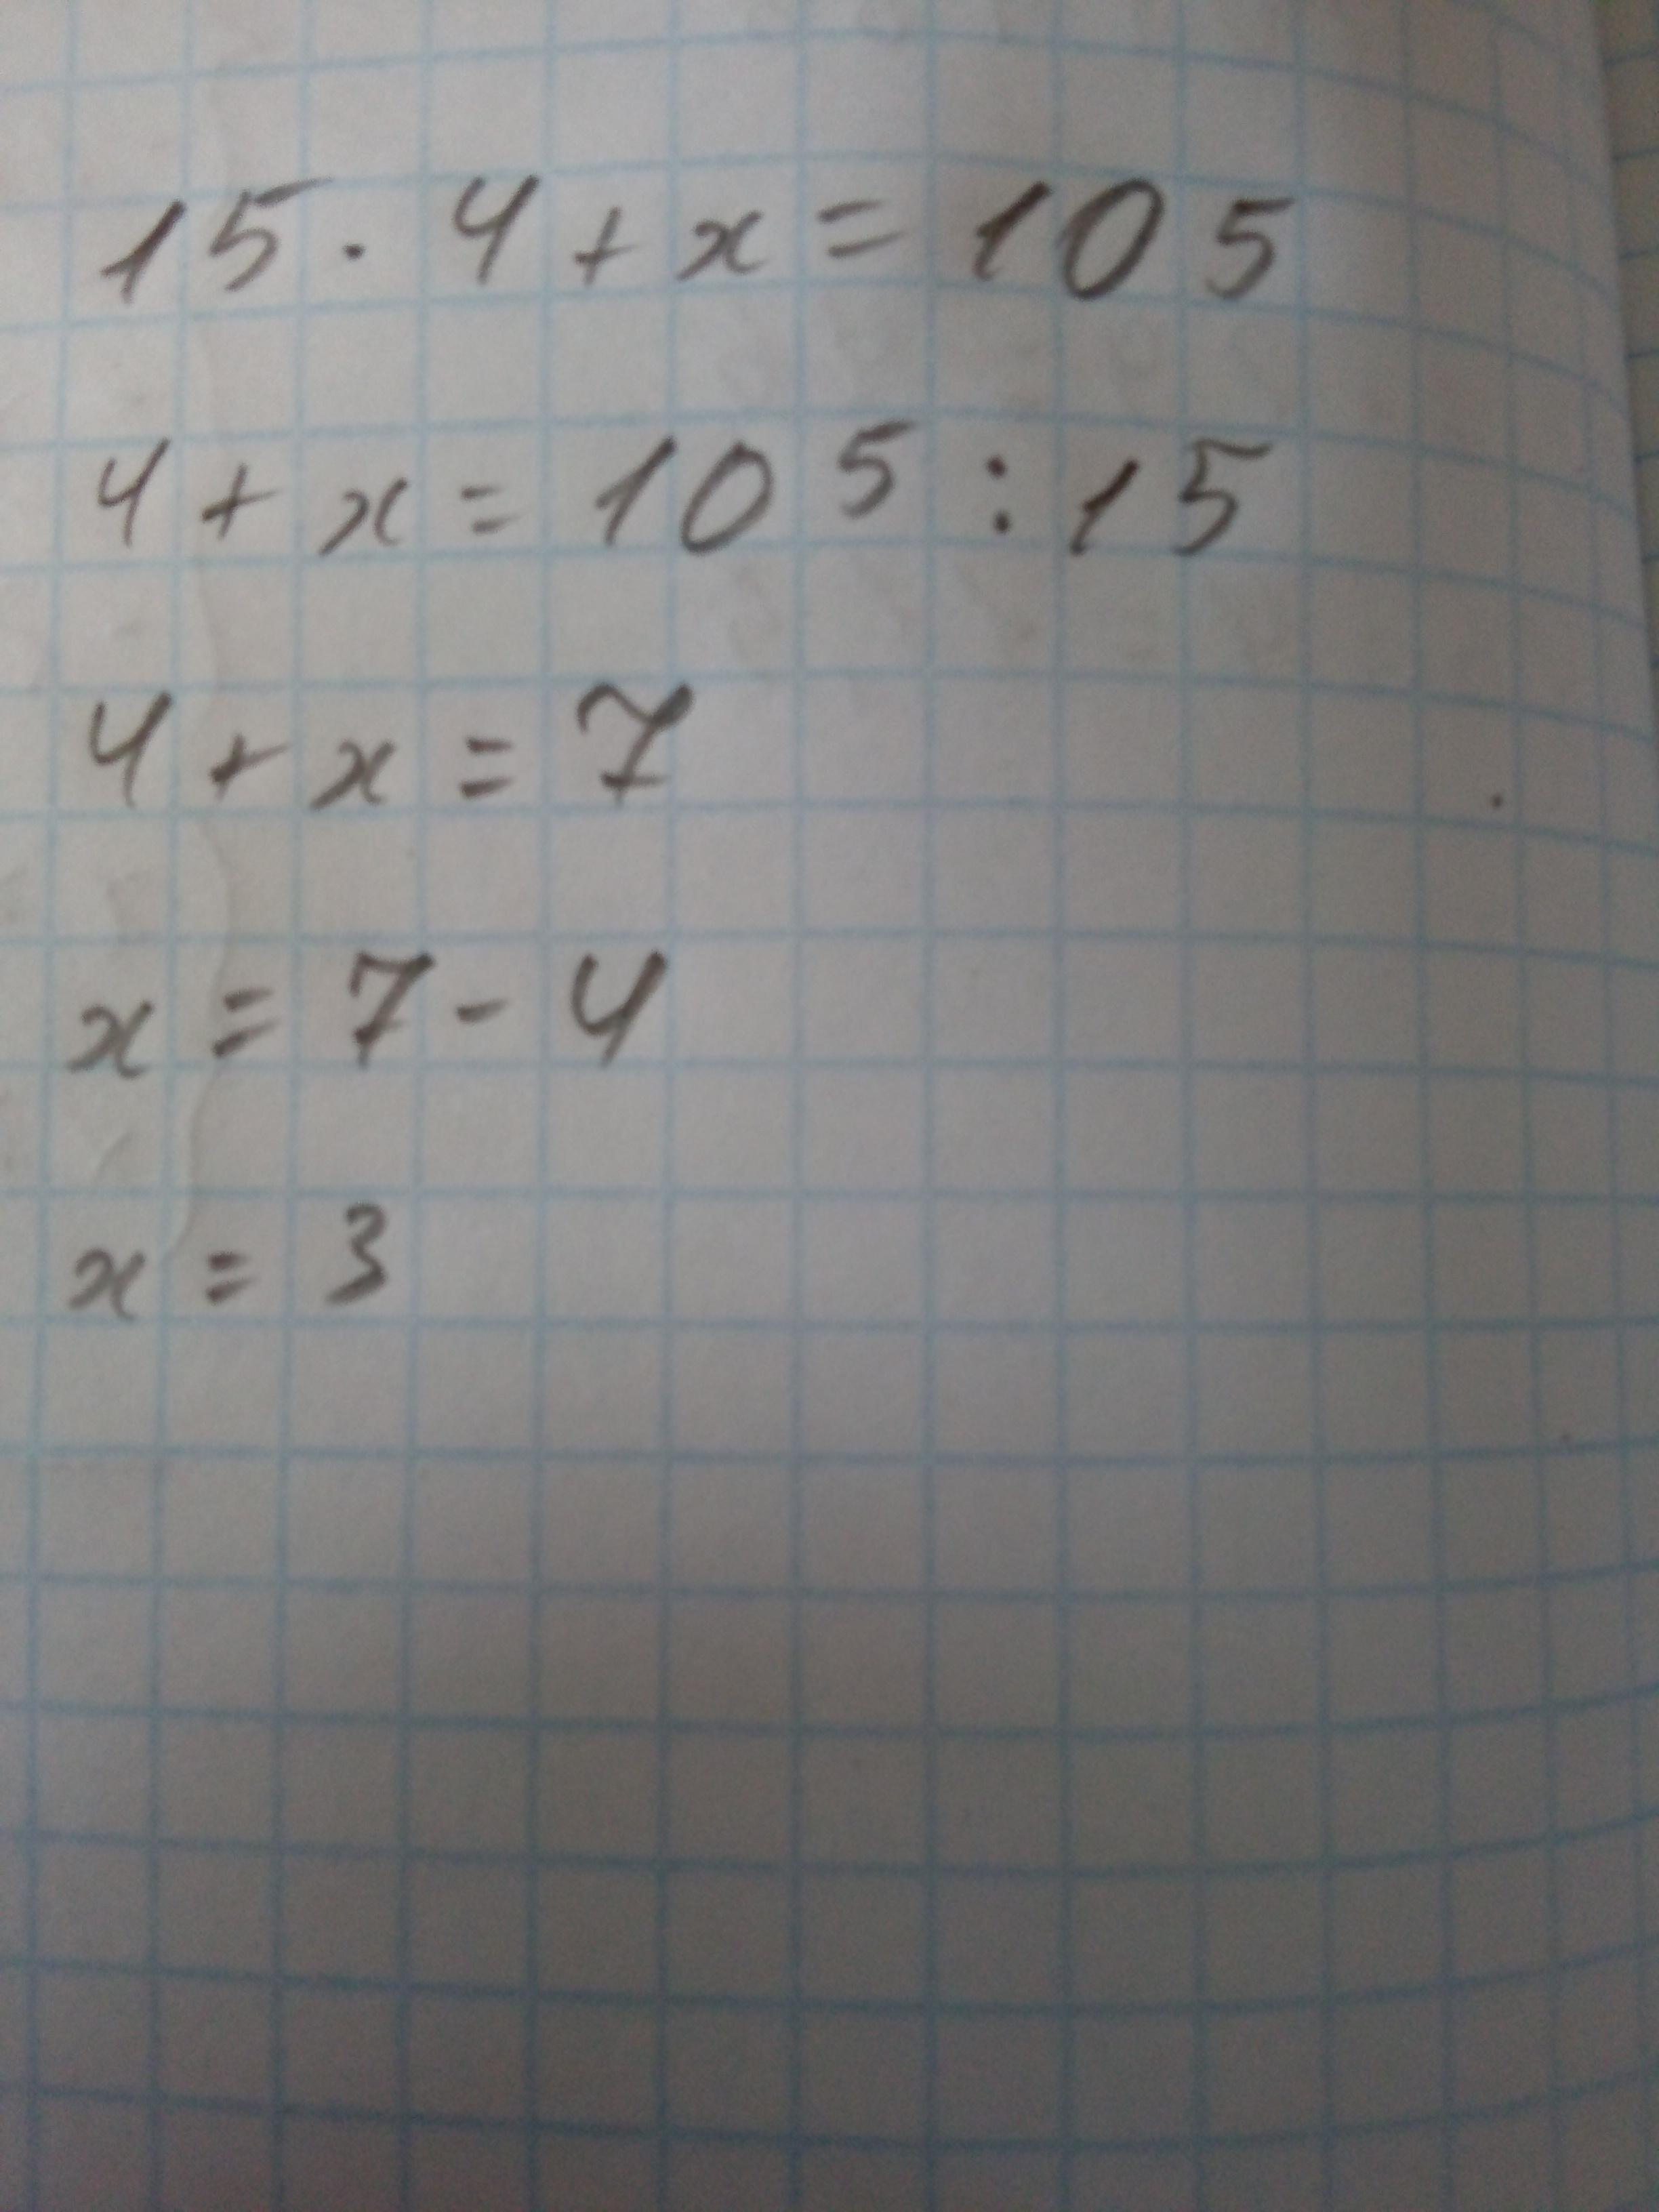 15 · 4 + x = 105
4 + x = 105 : 15
4 + x = 7
x = 7 - 4
x = 3